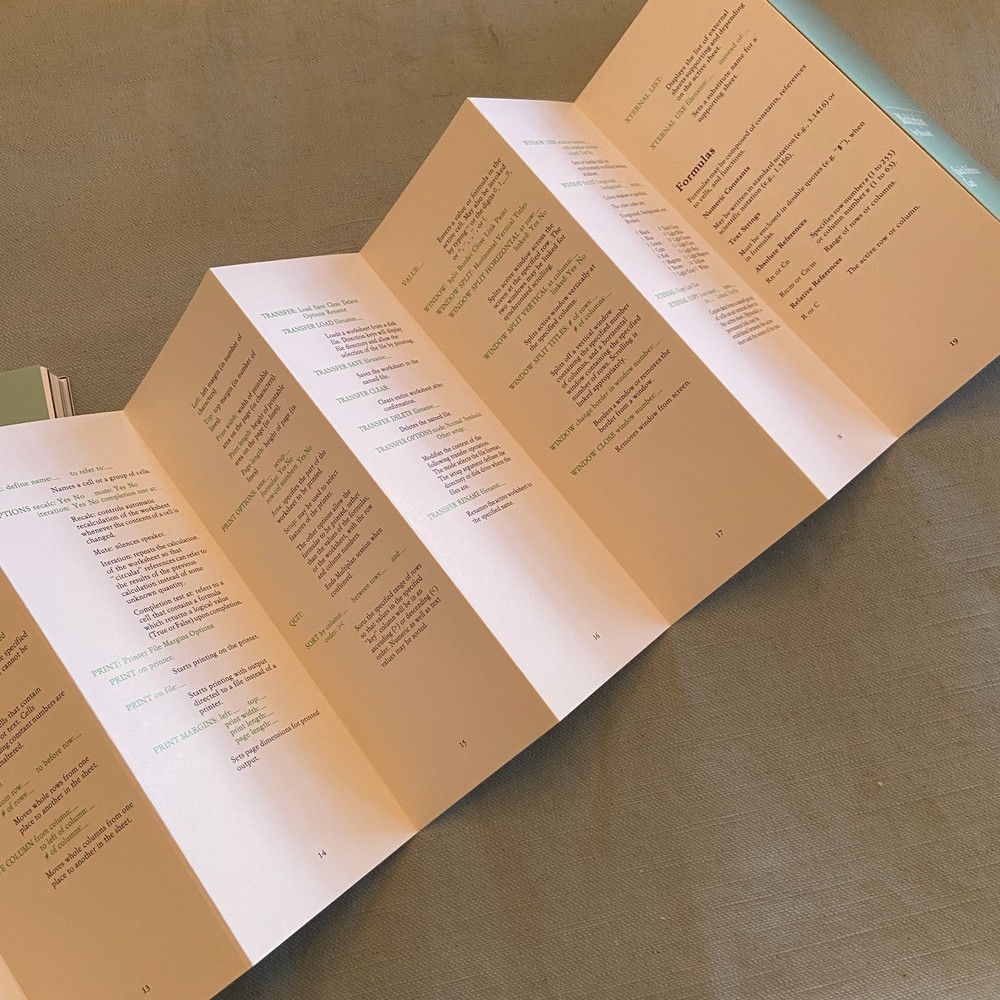 e specified
cannot be
lls that contain
or text. Cells
ing constant numbers are
naltered.
rom row:__ to before row:__
# of rows:__
Moves whole rows from one
place to another in the sheet.
E COLUMN from column:__
to left of column:__
# of columns:__
Moves whole columns from one
place to another in the sheet.
13
: define name:__ to refer to:__
Names a cell or a group of cells.
PTIONS recalc: Yes No mute: Yes No
iteration: Yes No completion test at:
Recalc: controls automatic
recalculation of the worksheet
whenever the contents of a cell is
changed.
Mute: silences speaker.
Iteration: repeats the calculation
of the worksheet so that
"circular" references can refer to
the results of the previous
calculation instead of some
unknown quantity.
Completion test at: refers to a
cell that contains a formula
which returns a logical value
(True or False) upon completion.
PRINT: Printer File Margins Options
PRINT on printer:
Starts printing on the printer.
PRINT on file:__
Starts printing with output
directed to a file instead of a
printer.
PRINT MARGINS: left:__ top:__
print width:__
print length:__
page length:__
Sets page dimensions for printed
output.
14
Left: left margin (in number of
characters)
Top: top margin (in number of
lines)
Print width: width of printable
area on the page (in characters)
Print length: height of printable
area on the page (in lines)
Page length: height of page (in
lines)
PRINT OPTIONS area:__ setup:__
formulas: Yes No
row-col numbers: Yes No
Area: specifies the part of the
worksheet to be printed.
Setup: may be used to select
features of the printer.
The other options allow the
formulas to be printed, rather
than the values of the formulas;
or the worksheet, with the row
and column numbers.
QUIT:
Ends Multiplan session when
confirmed.
SORT by column:__ between rows:__ and:__
order: > <
Sorts the specified range of rows
so that values in the specified
"key" column will be in an
ascending (>) or descending (<)
order. Numeric as well as text
values may be sorted.
15
TRANSFER: Load Save Clear Delete
Options Rename
TRANSFER LOAD filename:__
Loads a worksheet from a disk
file. Direction keys will display
file directory and allow the
selection of the file by printing.
TRANSFER SAVE filename:__
Saves the worksheet in the
named file.
TRANSFER CLEAR:
Clears entire worksheet after
confirmation.
TRANSFER DELETE filename:__
Deletes the named file.
TRANSFER OPTIONS mode: Normal Symbolic
Other setup:__
Modifies the context of the
following transfer operation.
The mode selects the file format.
The setup argument defines the
directory or disk drive where the
files are.
TRANSFER RENAME filename:__
Renames the active worksheet to
the specified name.
16
VALUE:
Enters a value or formula in the
active cell. May also be invoked
by typing = or the digits 0, 1,...9,
WINDOW: Split Border Close Link Paint
WINDOW SPLIT: Horizontal Vertical Titles
WINDOW SPLIT HORIZONTAL at row:__
linked: Yes No
Splits active window across the
screen at the specified row. The
two windows may be linked for
synchronized scrolling.
WINDOW SPLIT VERTICAL at column:__
linked: Yes No
Splits active window vertically at
the specified column.
WINDOW SPLIT TITLES: # of rows:__
# of columns:__
Splits off a vertical window
containing the specified number
of columns, and a horizontal
window containing the specified
number of rows. Scrolling is
linked appropriately.
WINDOW change border in window number:__
Borders a window or removes the
border from a window.
WINDOW CLOSE window number:__
Removes window from screen.
17
18
XTERNAL LIST:
Displays the list of external
sheets supporting and depending
on the active sheet.
XTERNAL USE filename:__ instead of:__
Sets a substitute name for a
supporting sheet.
Formulas
Formulas may be composed of constants, references
to cells, and functions.
Numeric Constants
May be written in standard notation (e.g., 3.1416) or
scientific notation (e.g., 1.5E6).
Text Strings
Must be enclosed in double quotes (e.g. "$"), when
in formulas.
Absolute References
Rn or Cn
Specifies row number n (1 to 255)
or column number n (1 to 63).
Rn:m or Cn:m
Range of rows or columns.
Relative References
R or C
The active row or column.
19